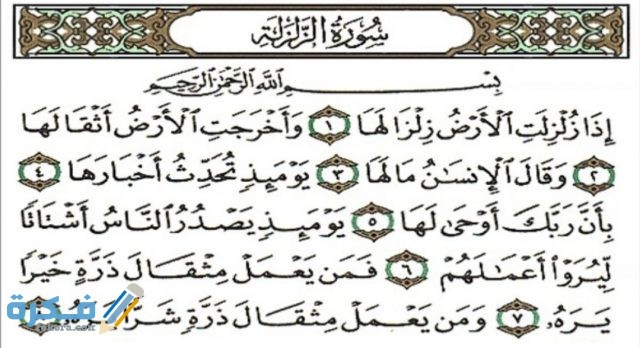 سُورَةُ الزَّلْزَلَةِ
بِسْمِ اللَّهِ الرَّحْمَٰنِ الرَّحِيمِ
إِذَا زُلْزِلَتِ الْأَرْضُ زِلْزَالَهَا ١ وَأَخْرَجَتِ الْأَرْضُ أَثْقَالَهَا
٢ وَقَالَ الْإِنسَٰنُ مَا لَهَا ٣ يَوْمَئِذٍ تُحَدِّثُ أَخْبَارَهَا ٤
بِأَنَّ رَبَّكَ أَوْحَىٰ لَهَا ٥ يَوْمَئِذٍ يَصْدُرُ النَّاسُ أَشْتَاتًا
لِّيُرَوْا أَعْمَٰلَهُمْ ٦ فَمَن يَعْمَلْ مِثْقَالَ ذَرَّةٍ خَيْرًا
يَرَهُۥ ٧ وَمَن يَعْمَلْ مِثْقَالَ ذَرَّةٍ شَرًّا يَرَهُۥ
فكرة